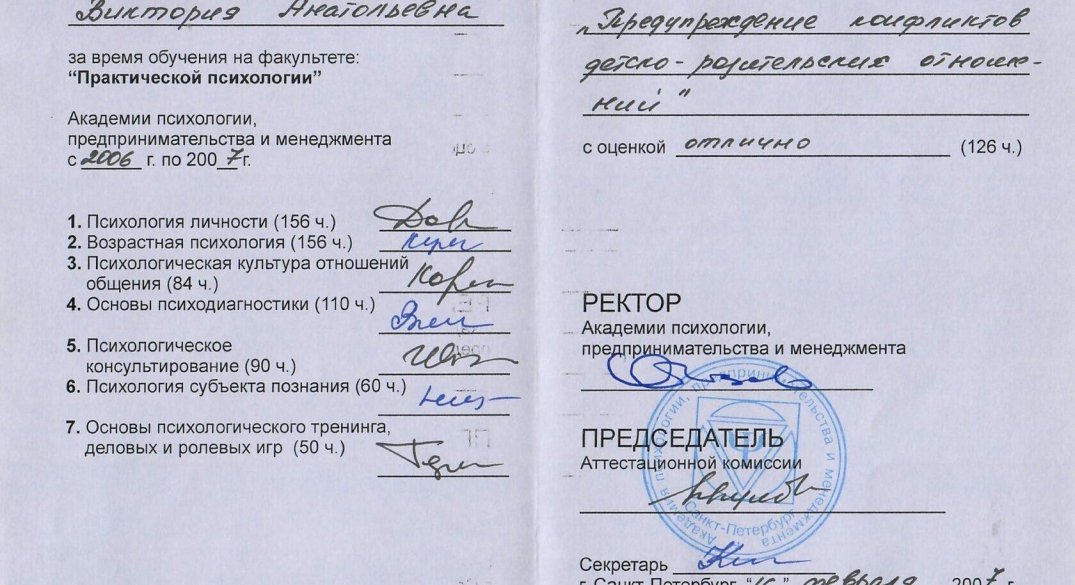 Виктория Анатольевна
за время обучения на факультете:
“Практической психологии”
Академии психологии,
предпринимательства и менеджмента
с 2006 г. по 2007г.
1. Психология личности (156 ч.)
2. Возрастная психология (156 ч.)
3. Психологическая культура отношений
общения (84 ч.)
4. Основы психодиагностики (110 ч.)
5. Психологическое
консультирование (90 ч.)
6. Психология субъекта познания (60 ч.)
7. Основы психологического тренинга,
деловых и ролевых игр (50 ч.)
„Предупреждение конфликтов
детско-родительских отноше-
ний"
с оценкой отлично (126 ч.)
РЕКТОР
Академии психологии,
предпринимательства и менеджмента
ПРЕДСЕДАТЕЛЬ
Аттестационной комиссии
Академия психологии, предпринимательства и менеджмента
Санкт-Петербург
Секретарь
г. Санкт-Петербург “ ” февраля 2007 г.